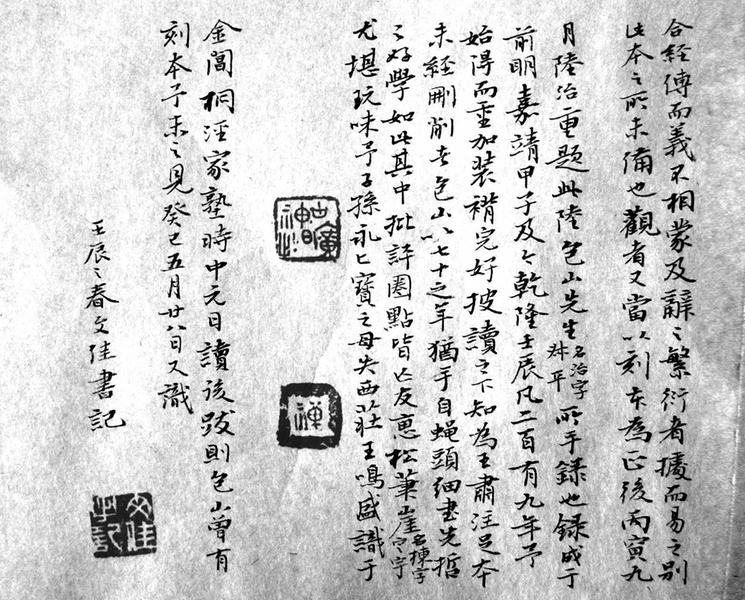 合經傅而義不相蒙及辭之繁衍者擾而易之別
此本之所未備也觀者又當以刻本為正後丙寅九
月陸治重題此陸包山先生名治字叔平所手錄也錄成于
前明嘉靖甲子及今乾隆壬辰凡二百有九年予
始得而重加裝褙完好披讀之下知為王肅注足本
未經刪削者包山以七十之年猶手自蠅頭細書先哲
之好學如此其中批評圈點皆亡友惠松崖名棟字定宇筆
尤堪玩味予子孫永之寶之毋失西莊王鳴盛識于
金閶桐涇家塾時中元日讀後跋則包山曾有
刻本予未之見癸巳五月廿八日又識
壬辰之春文佳書記
文佳書記